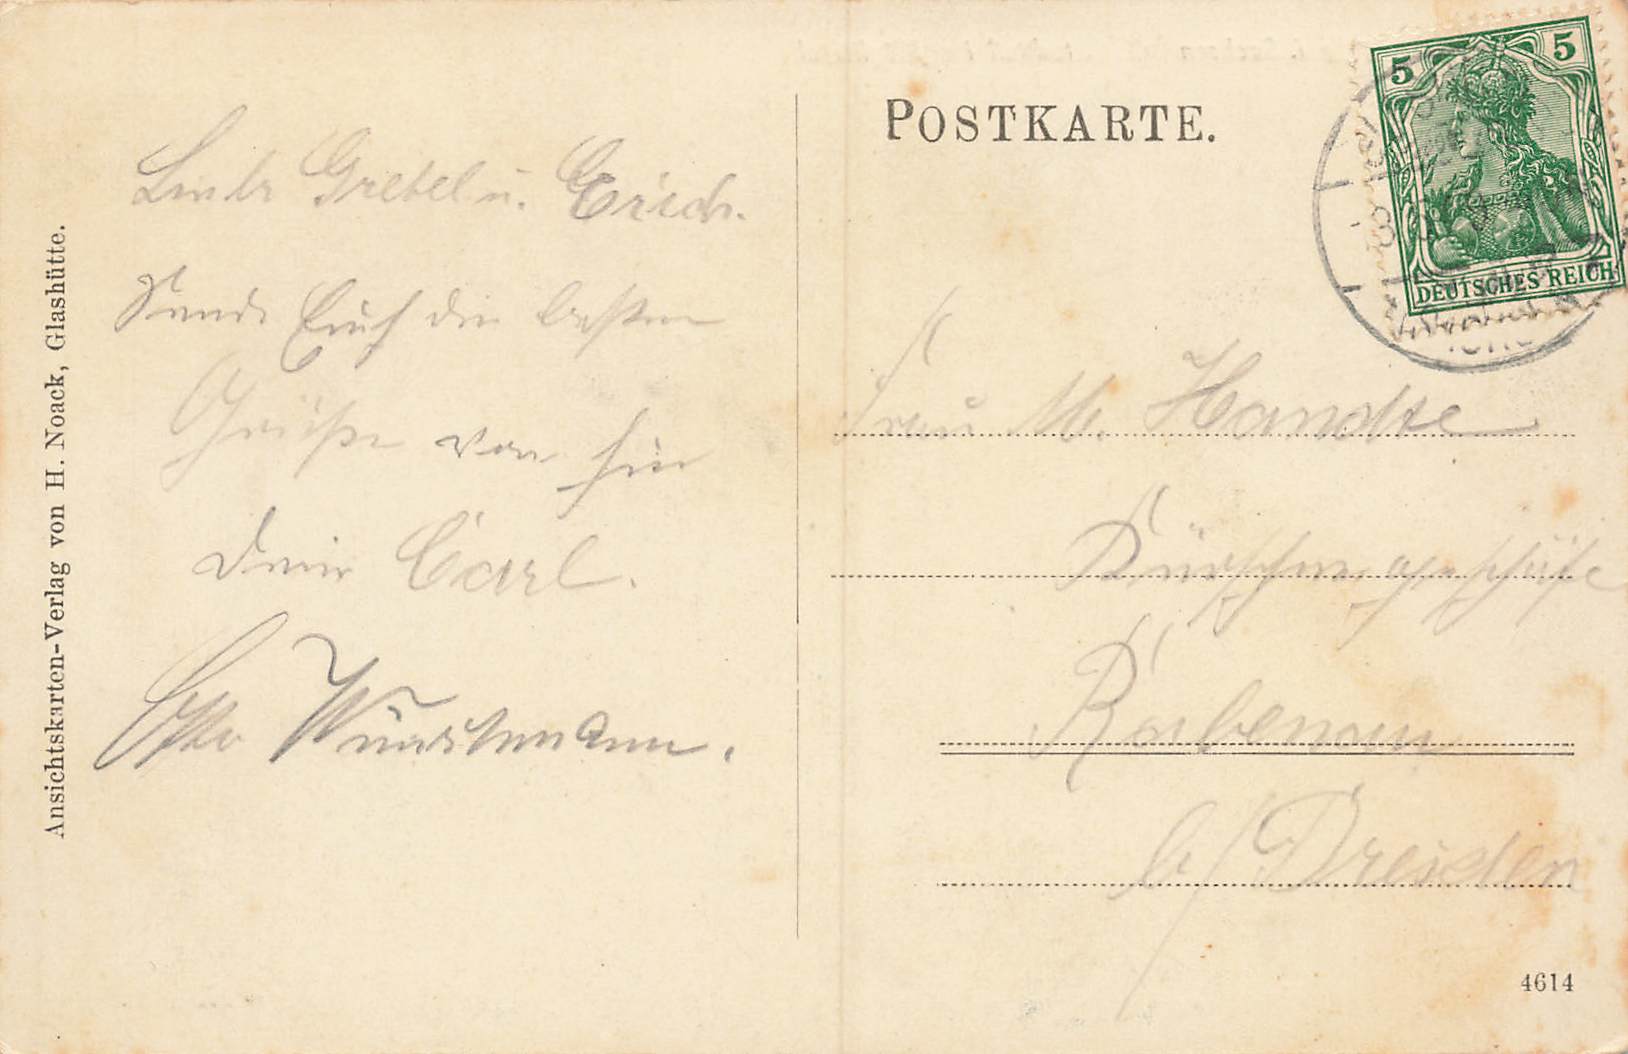 Ansichtskarten-Verlag von H. Noack, Glashütte.
Liebe Gretel u. Erich.
Sende Euch die besten
Grüße von hier
Dein Carl.
Otto
POSTKARTE.
5 5
DEUTSCHES REICH
Frau M. Handke
Kürschnergeschäft
Rabenau
b/Dresden
4614